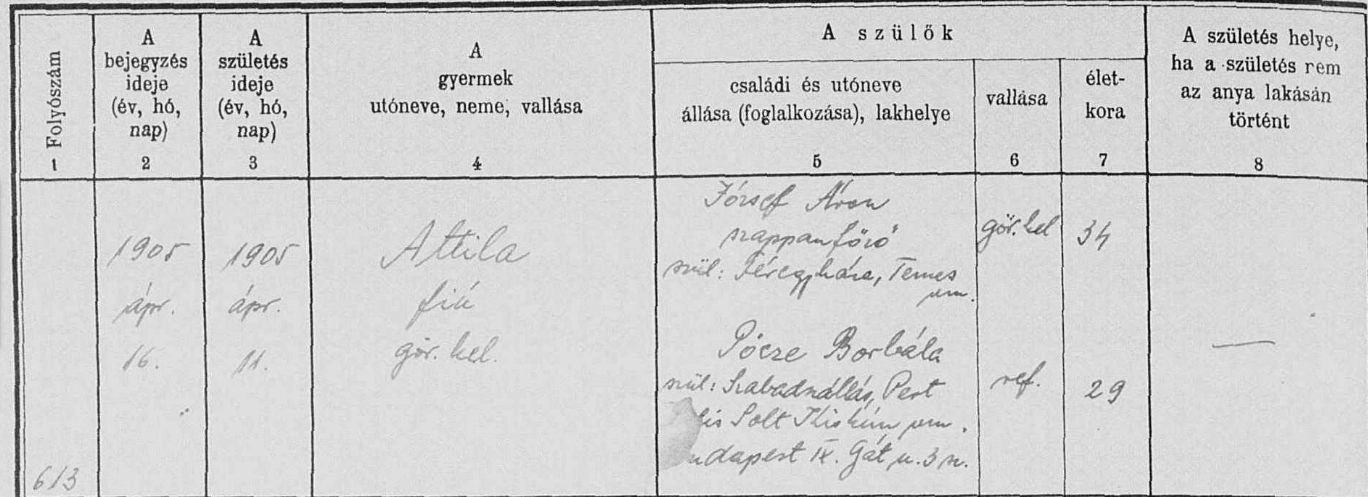 Folyószám
A bejegyzés ideje (év, hó, nap)
A születés ideje (év, hó, nap)
A gyermek utóneve, neme, vallása
A szülők
családi és utóneve állása (foglalkozása), lakhelye
vallása
életkora
A születés helye, ha a születés rem az anya lakásán történt
1 2 3 4 5 6 7 8
613
1905 ápr. 16.
1905 ápr. 11.
Attila
fiú
gör. kel.
József Áron
szappanfőző
szül: Temes vm.
gör. kel
34
Pőcze Borbála
szül: Szabadszállás, Pest
Pilis Solt Kiskún vm.
Budapest IX. Gát u. 3 sz.
ref.
29
—